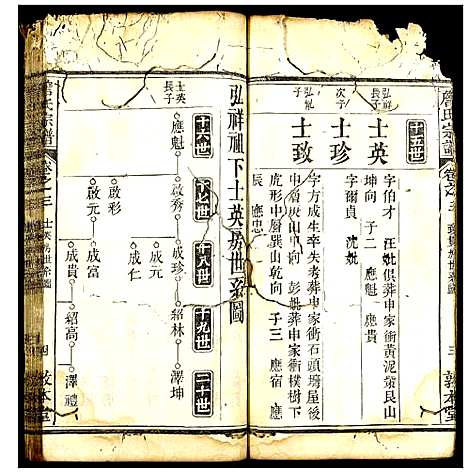 詹氏宗譜
卷之三
三
敦本堂
十五世
弘祥
長子
士英
字伯才 汪妣俱葬申家衝黃泥
坤向 子二 應魁 應貴
次子
士珍
字爾貞 沈妣
弘
子
士致
字方成生卒失考葬申家衝石頭塝屋後
山中辰山中向 彭妣葬申家衝樸樹下
虎形中厝巽山乾向 子三 應宿 應
辰 應忠
弘祥祖下士英房世系圖
十六世
十七世
十八世
十九世
二十世
士英
長子
應魁
啟秀
成珍
紹林
澤坤
成仁
啟彩
成富
啟元
成貴
紹高
澤禮
氏宗譜
卷之三
士英房世系圖
四
敦本堂